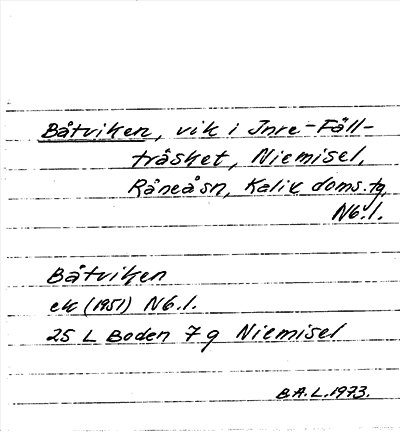 Båtviken, vik i Inre-Fäll-
träsket, Niemisel,
Råneå sn, Kalix doms. tg,
Nb. l.
Båtviken
ek (1951) Nb. l.
25 L Boden 7 g Niemisel
B.A.L. 1973.